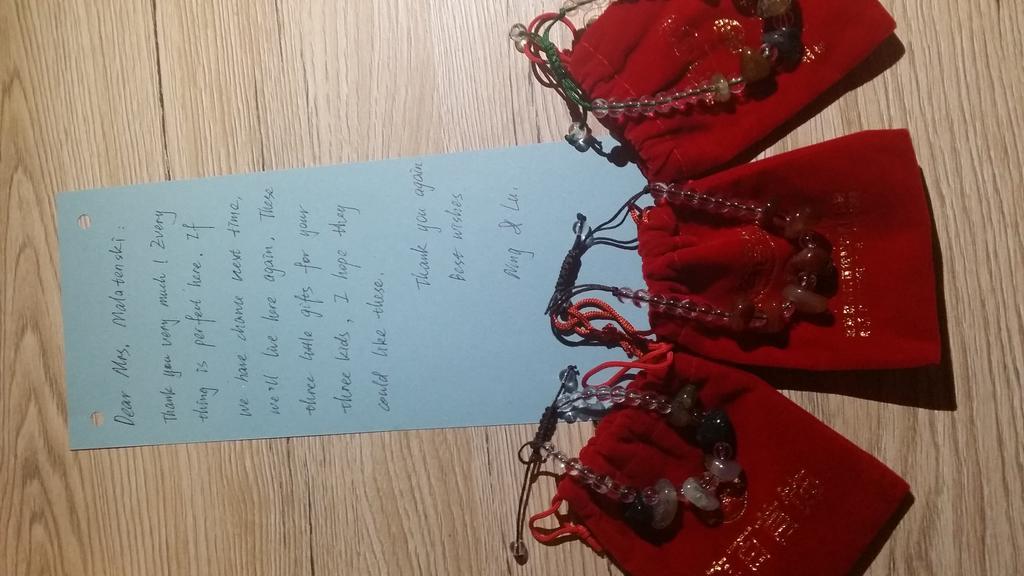 Dear Mrs. Molatienski:
Thank you very much! Every
thing is perfect here. If
we have chance next time,
we'll live here again. These
three little gifts for your
three kids, I hope they
could like these.
Thank you again
best wishes
Ning & Lu.